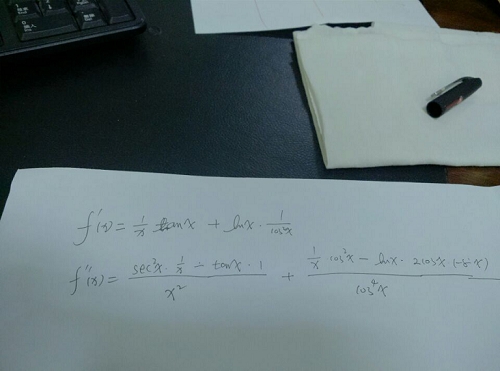 f'(x) = 1/x tanx + lnx · 1/cos²x
f''(x) = (sec²x · 1/x - tanx · 1)/x² + (1/x cos²x - lnx · 2cosx (-sinx))/cos⁴x